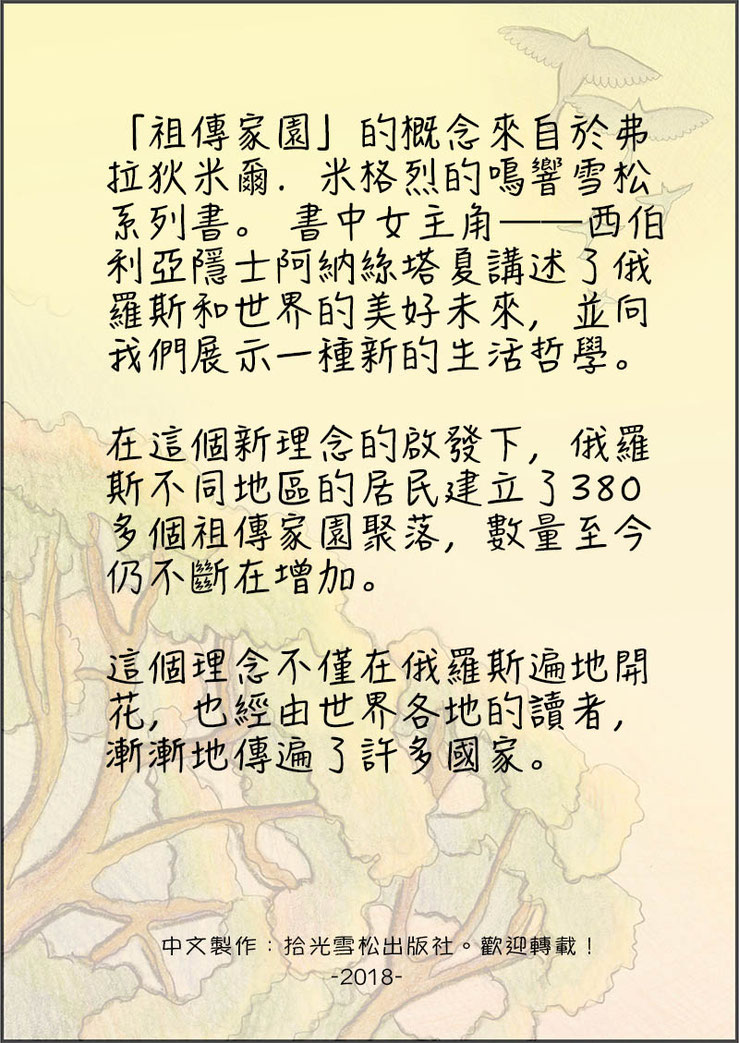 「祖傳家園」的概念來自於弗
拉狄米爾．米格烈的鳴響雪松
系列書。 書中女主角——西伯
利亞隱士阿納絲塔夏講述了俄
羅斯和世界的美好未來，並向
我們展示一種新的生活哲學。
在這個新理念的啟發下，俄羅
斯不同地區的居民建立了380
多個祖傳家園聚落，數量至今
仍不斷在增加。
這個理念不僅在俄羅斯遍地開
花，也經由世界各地的讀者，
漸漸地傳遍了許多國家。
中文製作：拾光雪松出版社。歡迎轉載！
-2018-